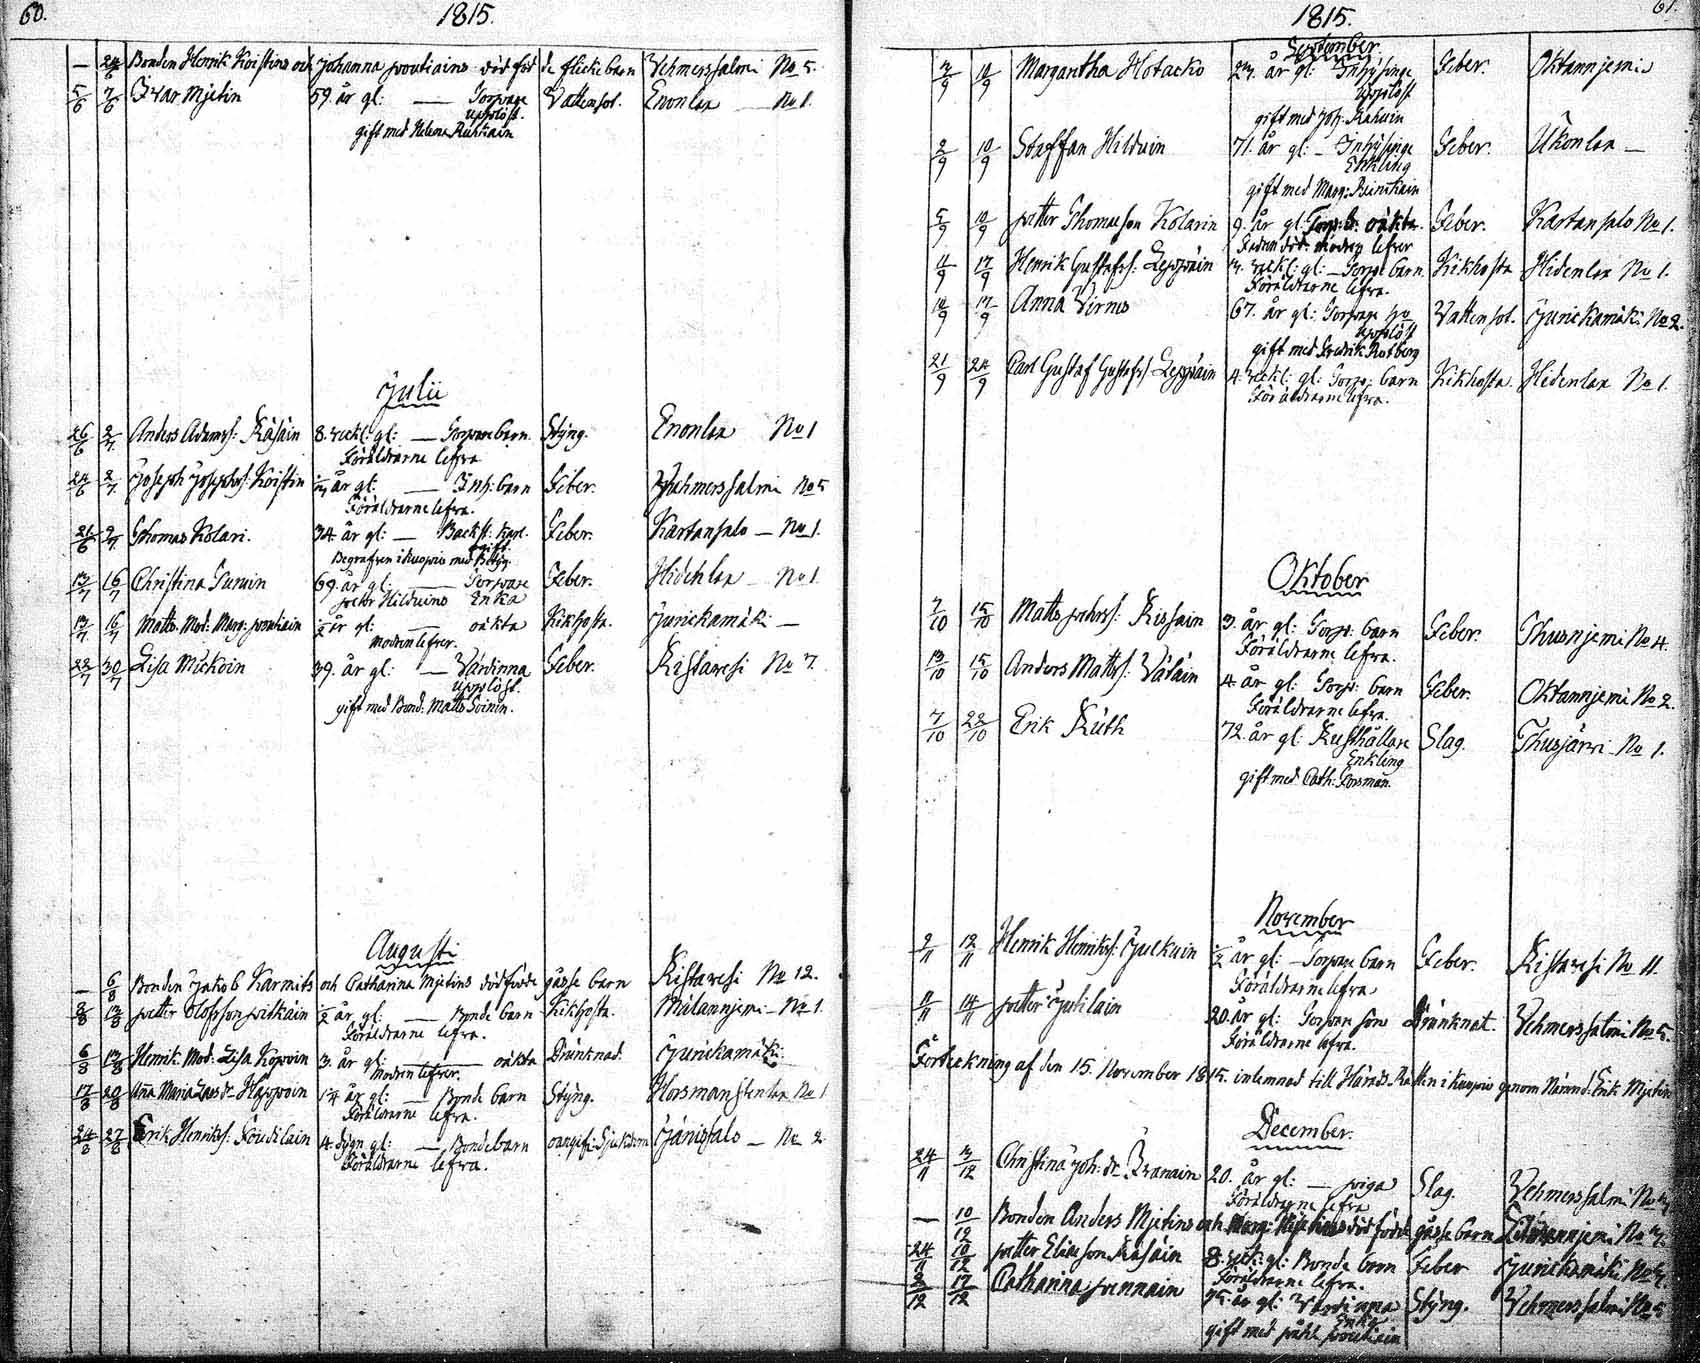 60.
1815.
— 24/6 Bonden Henrik Koistins och Johanna Poutiains död föd de flicke barn Vehmerssalmi No 5.
5/6 7/6 Ivar Mjetin 59. år gl: — Torpare Vattensot. Enonlax No 1.
Upplöst.
gift med Helena
Julii
26/6 2/7 Anders Adamss: Räsäin 8. veck: gl: — Torpare barn. Styng. Enonlax No 1
Föräldrarne lefva
24/6 2/7 Joseph Josephss: Koistin år gl: — Inh: barn Feber. Vehmerssalmi No 5
Föräldrarne lefva.
26/6 2/7 Thomas Kolari. 34. år gl: — Backst: karl. Feber. Kartansalo — No 1.
ogift.
Begrafven i Kuopio med Betyg.
13/7 16/7 Christina 69. år gl: — Torpare Feber. Hidenlax — No 1
Petter Hilduins Enka
13/7 16/7 Matts. Mod: Marg: Poutiain 1/2 år gl: — oäkta Kikhosta. Jurickamäki —
modren lefver.
22/7 30/7 Lisa Mickoin 39. år gl: — Värdinna Feber. Ristavesi No 7.
Upplöst.
gift med Bond: Matts Soinin.
Augusti
— 6/8 Bonden Jakob Karmits och Catharina Mjetins dödfödde gåsse barn Ristavesi No 12.
8/8 13/8 Petter Olofsson Pitkäin 1/2 år gl: — Bonde barn Kikhosta. Mittannjemi — No 1.
Föräldrarne lefva.
6/8 13/8 Henrik. Mod: Lisa Koppoin 3. år gl: — oäkta Drunknad. Jurickamäki
modren lefver.
17/8 20/8 Anna Maria Lars dr Happoin 1 1/4 år gl: — Bonde barn Styng. Horsmanstenlax No 1
Föräldrarne lefva.
24/8 27/8 Erik Henrikss: Loudilain 4. dygn gl: — Bondebarn oangifi: Sjukdom Jänissalo — No 2
Föräldrarne lefva.
61.
1815.
September.
3/9 10/9 Margaretha Hotacko 23. år gl: Inhysinge Feber. Oktannjemi
Upplöst
gift med Joh:
2/9 10/9 Staffan Hilduin 71. år gl: — Inhysinge Feber. Ukonlax —
Enkling
gift med Marg:
5/9 10/9 Petter Thomasson Kolarin 9. år gl: Torp: b: oäkta. Feber. Kartansalo No 1.
Fadren död. modren lefver
11/9 17/9 Henrik Gustafss: Leppäin 3. veck: gl: — Torp: barn Kikhosta Hidenlax No 1.
Föräldrarne lefva.
14/9 17/9 Anna Virnes 67. år gl: Torpare Hu Vattensot. Jurickamäki No 2.
Upplöst
gift med Fredrik Rotberg
21/9 24/9 Carl Gustaf Gustafss: Leppäin 4. veck: gl: Torp: barn Kikhosta. Hidenlax No 1.
Föräldrarne lefva.
Oktober
7/10 15/10 Matts Rissain 3. år gl: Torp: barn Feber. Thusnjemi No 4.
Föräldrarne lefva.
13/10 15/10 Anders Mattss: Vätäin 4. år gl: Torp: barn Feber. Oktannjemi No 2.
Föräldrarne lefva.
7/10 22/10 Erik Rüth 72. år gl: Rusthållare Slag. Thusjärvi No 1.
Enkling
gift med Cath: Forsman.
November
9/11 12/11 Henrik Henrikss: Julkuin 1/2 år gl: — Torpare barn Feber. Ristavesi No 11.
Föräldrarne lefva
11/11 14/11 Petter Juhilain 20. år gl: Torpare son Drunknat. Vehmerssalmi No 5.
Föräldrarne lefva.
Förteckning af den 15. November 1815. inlemnad till Härads Rätten i Kuopio genom Nämnd: Erik Mjetin
December.
24/11 3/12 Christina Joh: dr 20. år gl: — piga Slag. Vehmerssalmi No
Föräldrarne lefva
— 10/12 Bonden Anders Mjetins och Marg: död födde gåsse barn No
24/11 10/12 Petter Eliasson Räsäin 8. veck: gl: Bonde barn Feber Jurickamäki No
Föräldrarne lefva.
2/12 17/12 Catharina Pennain 75. år gl: Värdinna Styng. Vehmerssalmi No 5
Enka
gift med Påhl Poutiain